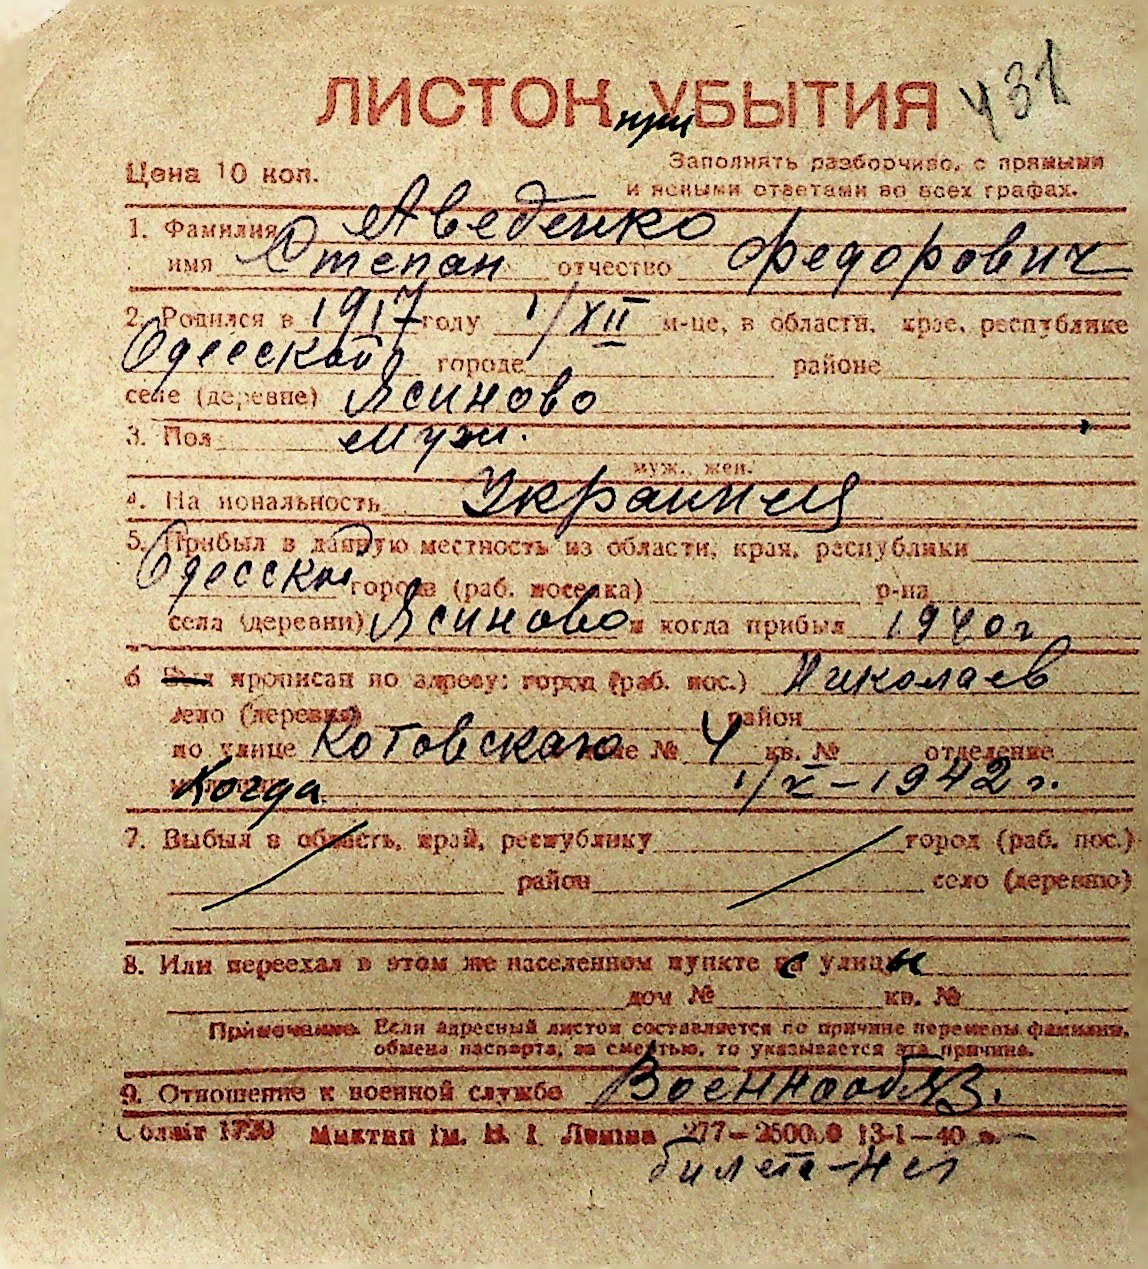 ЛИСТОК при УБЫТИЯ 431
Цена 10 коп.
Заполнять разборчиво, с прямыми
и ясными ответами во всех графах.
1. Фамилия Аведенко
имя Степан отчество Федорович
2. Родился в 1917 году 1/XII м-це, в области, крае, республике
Одесской городе районе
селе (деревне) Ясиново
3. Пол муж.
муж., жен.
4. На иональность Украинец
5. Прибыл в данную местность из области, края, республики
Одесской города (раб. поселка) р-на
села (деревни) Ясиново и когда прибыл 1940 г
6 прописан по адресу: город (раб. пос.) Николаев
село (деревня) район
по улице Котовского доме № 4 кв. № отделение
Когда 1/X-1942 г.
7. Выбыл в область, край, республику город (раб. пос.)
район село (деревню)
8. Или переехал в этом же населенном пункте с улицы
дом № кв. №
Примечание. Если адресный листок составляется по причине перемены фамилии,
обмена паспорта, за смертью, то указывается эта причина.
9. Отношение к военной службе Военнообяз.
Миктип ім. В. І. Леніна 277-25000 13-1-40
билета-нет